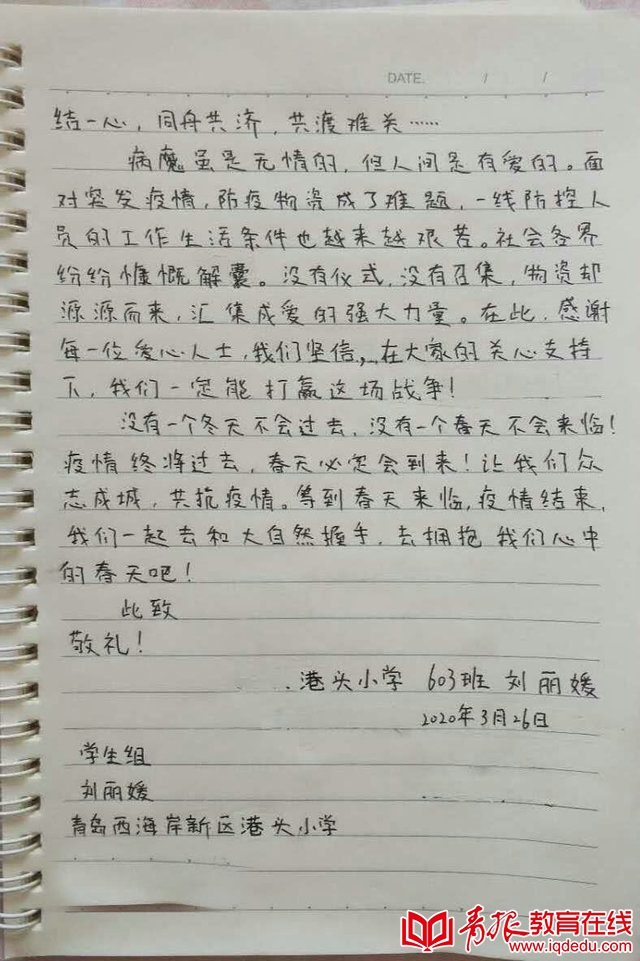 DATE. / /
结一心，同舟共济，共渡难关……
病魔虽是无情的，但人间是有爱的。面
对突发疫情，防疫物资成了难题，一线防控人
员的工作生活条件也越来越艰苦。社会各界
纷纷慷慨解囊。没有仪式，没有召集，物资却
源源而来，汇集成爱的强大力量。在此，感谢
每一位爱心人士，我们坚信，在大家的关心支持
下，我们一定能打赢这场战争！
没有一个冬天不会过去，没有一个春天不会来临！
疫情终将过去，春天必定会到来！让我们众
志成城，共抗疫情。等到春天来临，疫情结束，
我们一起去和大自然握手，去拥抱我们心中
的春天吧！
此致
敬礼！
港头小学 603班 刘丽媛
2020年3月26日
学生组
刘丽媛
青岛西海岸新区港头小学
青报教育在线
www.iqdedu.com